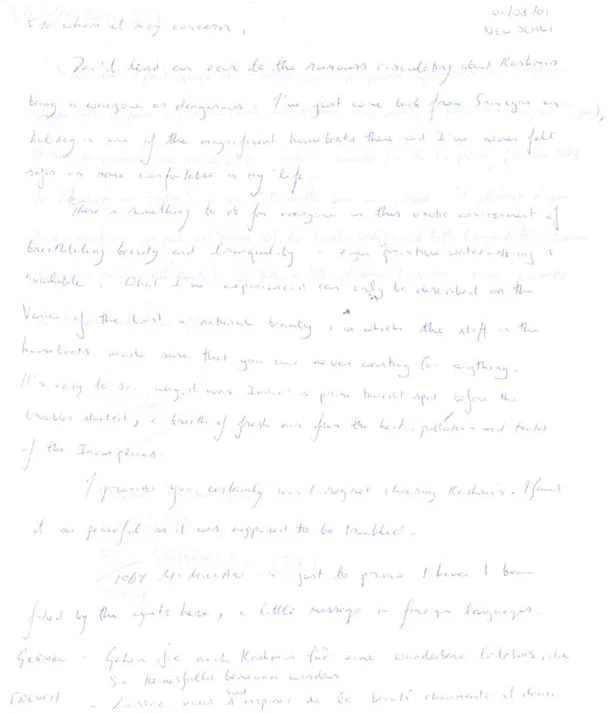 To whom it may concern,
01/03/01
NEW DELHI
Don't lend an ear to the rumours circulating about Kashmir
being a warzone or dangerous. I've just come back from Srinagar on
holiday in one of the magnificent houseboats there and I've never felt
safer or more comfortable in my life.
There is something to do for everyone in this exotic environment of
breathtaking beauty and tranquility - even water-skiing is
available. What I've experienced can only be described as the
Venice of the East natural beauty, in which the staff in the
houseboats made sure that you are never wanting for anything.
It's easy to see why it was India's prime tourist spot before the
troubles started, a breath of fresh air from the heat, pollution and
of the Indian plains.
I promise you certainly won't regret choosing Kashmir. I found
it as peaceful as it was supposed to be troubled.
TOBY - just to prove I haven't been
by the agents here, a little message in foreign languages.
GERMAN - Gehen Sie nach Kashmir für eine wunderbare Erlebnis, die
Sie keinesfalls bereuen werden
FRENCH - Laissez vous inspirer de la beauté charmante et douce